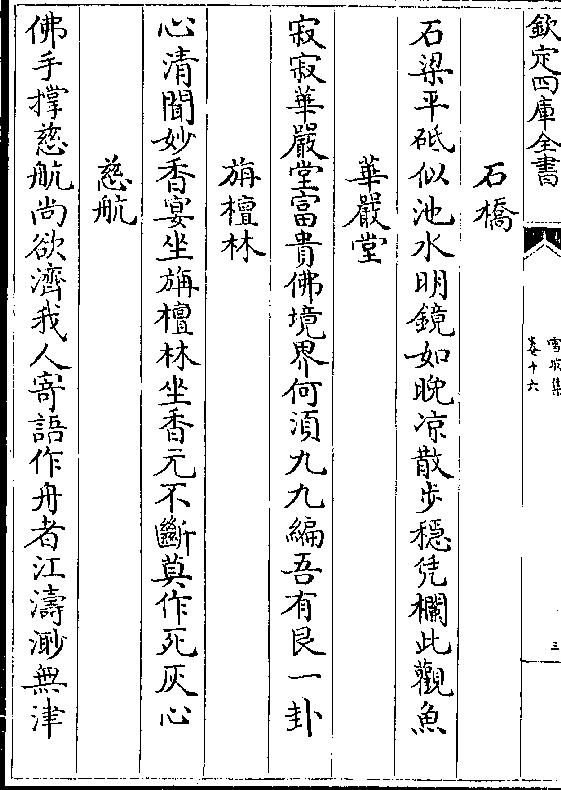 欽定四庫全書
雪坡集
卷十六
三
石橋
石梁平砥似池水明鏡如晚凉散步穩凭欄此觀魚
華嚴堂
寂寂華嚴堂富貴佛境界何湏九九編吾有艮一卦
旃檀林
心清聞妙香宴坐旃檀林坐香元不斷莫作死灰心
慈航
佛手撑慈航尚欲濟我人寄語作舟者江濤渺無津